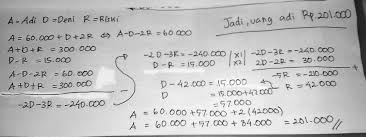 A = Adi D = Deni R = Riski
A = 60.000 + D + 2R ⇔ A - D - 2R = 60.000
A + D + R = 300.000
D - R = 15.000
A - D - 2R = 60.000
A + D + R = 300.000
-2D - 3R = -240.000
-2D - 3R = -240.000 |x1| -2D - 3R = -240.000
D - R = 15.000 |x2| 2D - 2R = 30.000
-5R = -210.000
R = 42.000
D - 42.000 = 15.000
D = 15.000 + 42.000
= 57.000
A = 60.000 + 57.000 + 2(42.000)
A = 60.000 + 57.000 + 84.000 = 201.000 //
Jadi, uang adi Rp 201.000